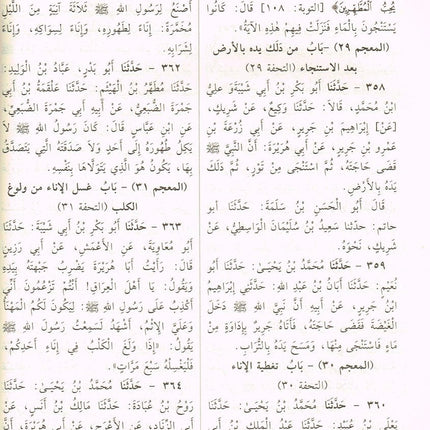 يُحِبُّ الْمُطَّهِّرِينَ﴾ [التوبة: ١٠٨] قَالَ: كَانُوا
يَسْتَنْجُونَ بِالْمَاءِ فَنَزَلَتْ فِيهِمْ هَذِهِ الْآيَةُ».
(المعجم ٢٩) - بَابُ مَن دَلَكَ يده بالأرض
بعد الاستنجاء (التحفة ٢٩)
٣٥٨ - حَدَّثَنَا أَبُو بَكْرِ بْنُ أَبِي شَيْبَةَ وَعَلِيُّ
ابْنُ مُحَمَّدٍ، قَالَا: حَدَّثَنَا وَكِيعٌ، عَنْ شَرِيكٍ،
[عَنْ] إِبْرَاهِيمَ بْنِ جَرِيرٍ، عَنْ أَبِي زُرْعَةَ بْنِ
عَمْرِو بْنِ جَرِيرٍ، عَنْ أَبِي هُرَيْرَةَ: أَنَّ النَّبِيَّ ﷺ
قَضَى حَاجَتَهُ، ثُمَّ اسْتَنْجَى مِنْ تَوْرٍ، ثُمَّ دَلَكَ
يَدَهُ بِالْأَرْضِ.
قَالَ أَبُو الْحَسَنِ بْنُ سَلَمَةَ: حَدَّثَنَا أبو
حاتم: حدثنا سَعِيدُ بْنُ سُلَيْمَانَ الْوَاسِطِيُّ، عَنْ
شَرِيكٍ، نَحْوَهُ.
٣٥٩ - حَدَّثَنَا مُحَمَّدُ بْنُ يَحْيَىٰ: حَدَّثَنَا أَبُو
نُعَيْمٍ: حَدَّثَنَا أَبَانُ بْنُ عَبْدِ اللهِ: حَدَّثَنِي إِبْرَاهِيمُ
ابْنُ جَرِيرٍ، عَنْ أَبِيهِ أَنَّ نَبِيَّ اللهِ ﷺ دَخَلَ
الْغَيْضَةَ فَقَضَى حَاجَتَهُ، فَأَتَاهُ جَرِيرٌ بِإِدَاوَةٍ مِنْ
مَاءٍ فَاسْتَنْجَى مِنْهَا، وَمَسَحَ يَدَهُ بِالتُّرَابِ.
(المعجم ٣٠) - بَابُ تغطية الإناء
(التحفة ٣٠)
٣٦٠ - حَدَّثَنَا مُحَمَّدُ بْنُ يَحْيَىٰ: حَدَّثَنَا
يَعْلَى بْنُ عُبَيْدٍ: حَدَّثَنَا عَبْدُ الْمَلِكِ بْنُ أَبِي
أَصْنَعُ لِرَسُولِ اللهِ ﷺ ثَلَاثَةَ آنِيَةٍ مِنَ اللَّيْلِ
مُخَمَّرَةً: إِنَاءً لِطَهُورِهِ، وَإِنَاءً لِسِوَاكِهِ، وَإِنَاءً
لِشَرَابِهِ.
٣٦٢ - حَدَّثَنَا أَبُو بَدْرٍ، عَبَّادُ بْنُ الْوَلِيدِ:
حَدَّثَنَا مُطَهَّرُ بْنُ الْهَيْثَمِ: حَدَّثَنَا عَلْقَمَةُ بْنُ أَبِي
جَمْرَةَ الضُّبَعِيُّ، عَنْ أَبِيهِ أَبِي جَمْرَةَ الضُّبَعِيِّ،
عَنِ ابْنِ عَبَّاسٍ قَالَ: كَانَ رَسُولُ اللهِ ﷺ لَا
يَكِلُ طُهُورَهُ إِلَى أَحَدٍ وَلَا صَدَقَتَهُ الَّتِي يَتَصَدَّقُ
بِهَا، يَكُونُ هُوَ الَّذِي يَتَوَلَّاهَا بِنَفْسِهِ.
(المعجم ٣١) - بَابُ غسل الإناء من ولوغ
الكلب (التحفة ٣١)
٣٦٣ - حَدَّثَنَا أَبُو بَكْرِ بْنُ أَبِي شَيْبَةَ: حَدَّثَنَا
أَبُو مُعَاوِيَةَ، عَنِ الْأَعْمَشِ، عَنْ أَبِي رَزِينٍ
قَالَ: رَأَيْتُ أَبَا هُرَيْرَةَ يَضْرِبُ جَبْهَتَهُ بِيَدِهِ
وَيَقُولُ: يَا أَهْلَ الْعِرَاقِ! أَنْتُمْ تَزْعُمُونَ أَنِّي
أَكْذِبُ عَلَى رَسُولِ اللهِ ﷺ: لِيَكُونَ لَكُمُ الْمَهْنَأُ
وَعَلَيَّ الْإِثْمُ، أَشْهَدُ لَسَمِعْتُ رَسُولَ اللهِ ﷺ
يَقُولُ: «إِذَا وَلَغَ الْكَلْبُ فِي إِنَاءِ أَحَدِكُمْ،
فَلْيَغْسِلْهُ سَبْعَ مَرَّاتٍ».
٣٦٤ - حَدَّثَنَا مُحَمَّدُ بْنُ يَحْيَىٰ: حَدَّثَنَا
رَوْحُ بْنُ عُبَادَةَ: حَدَّثَنَا مَالِكُ بْنُ أَنَسٍ، عَنْ
أَبِي الزِّنَادِ، عَنِ الْأَعْرَجِ، عَنْ أَبِي هُرَيْرَةَ، أَنَّ